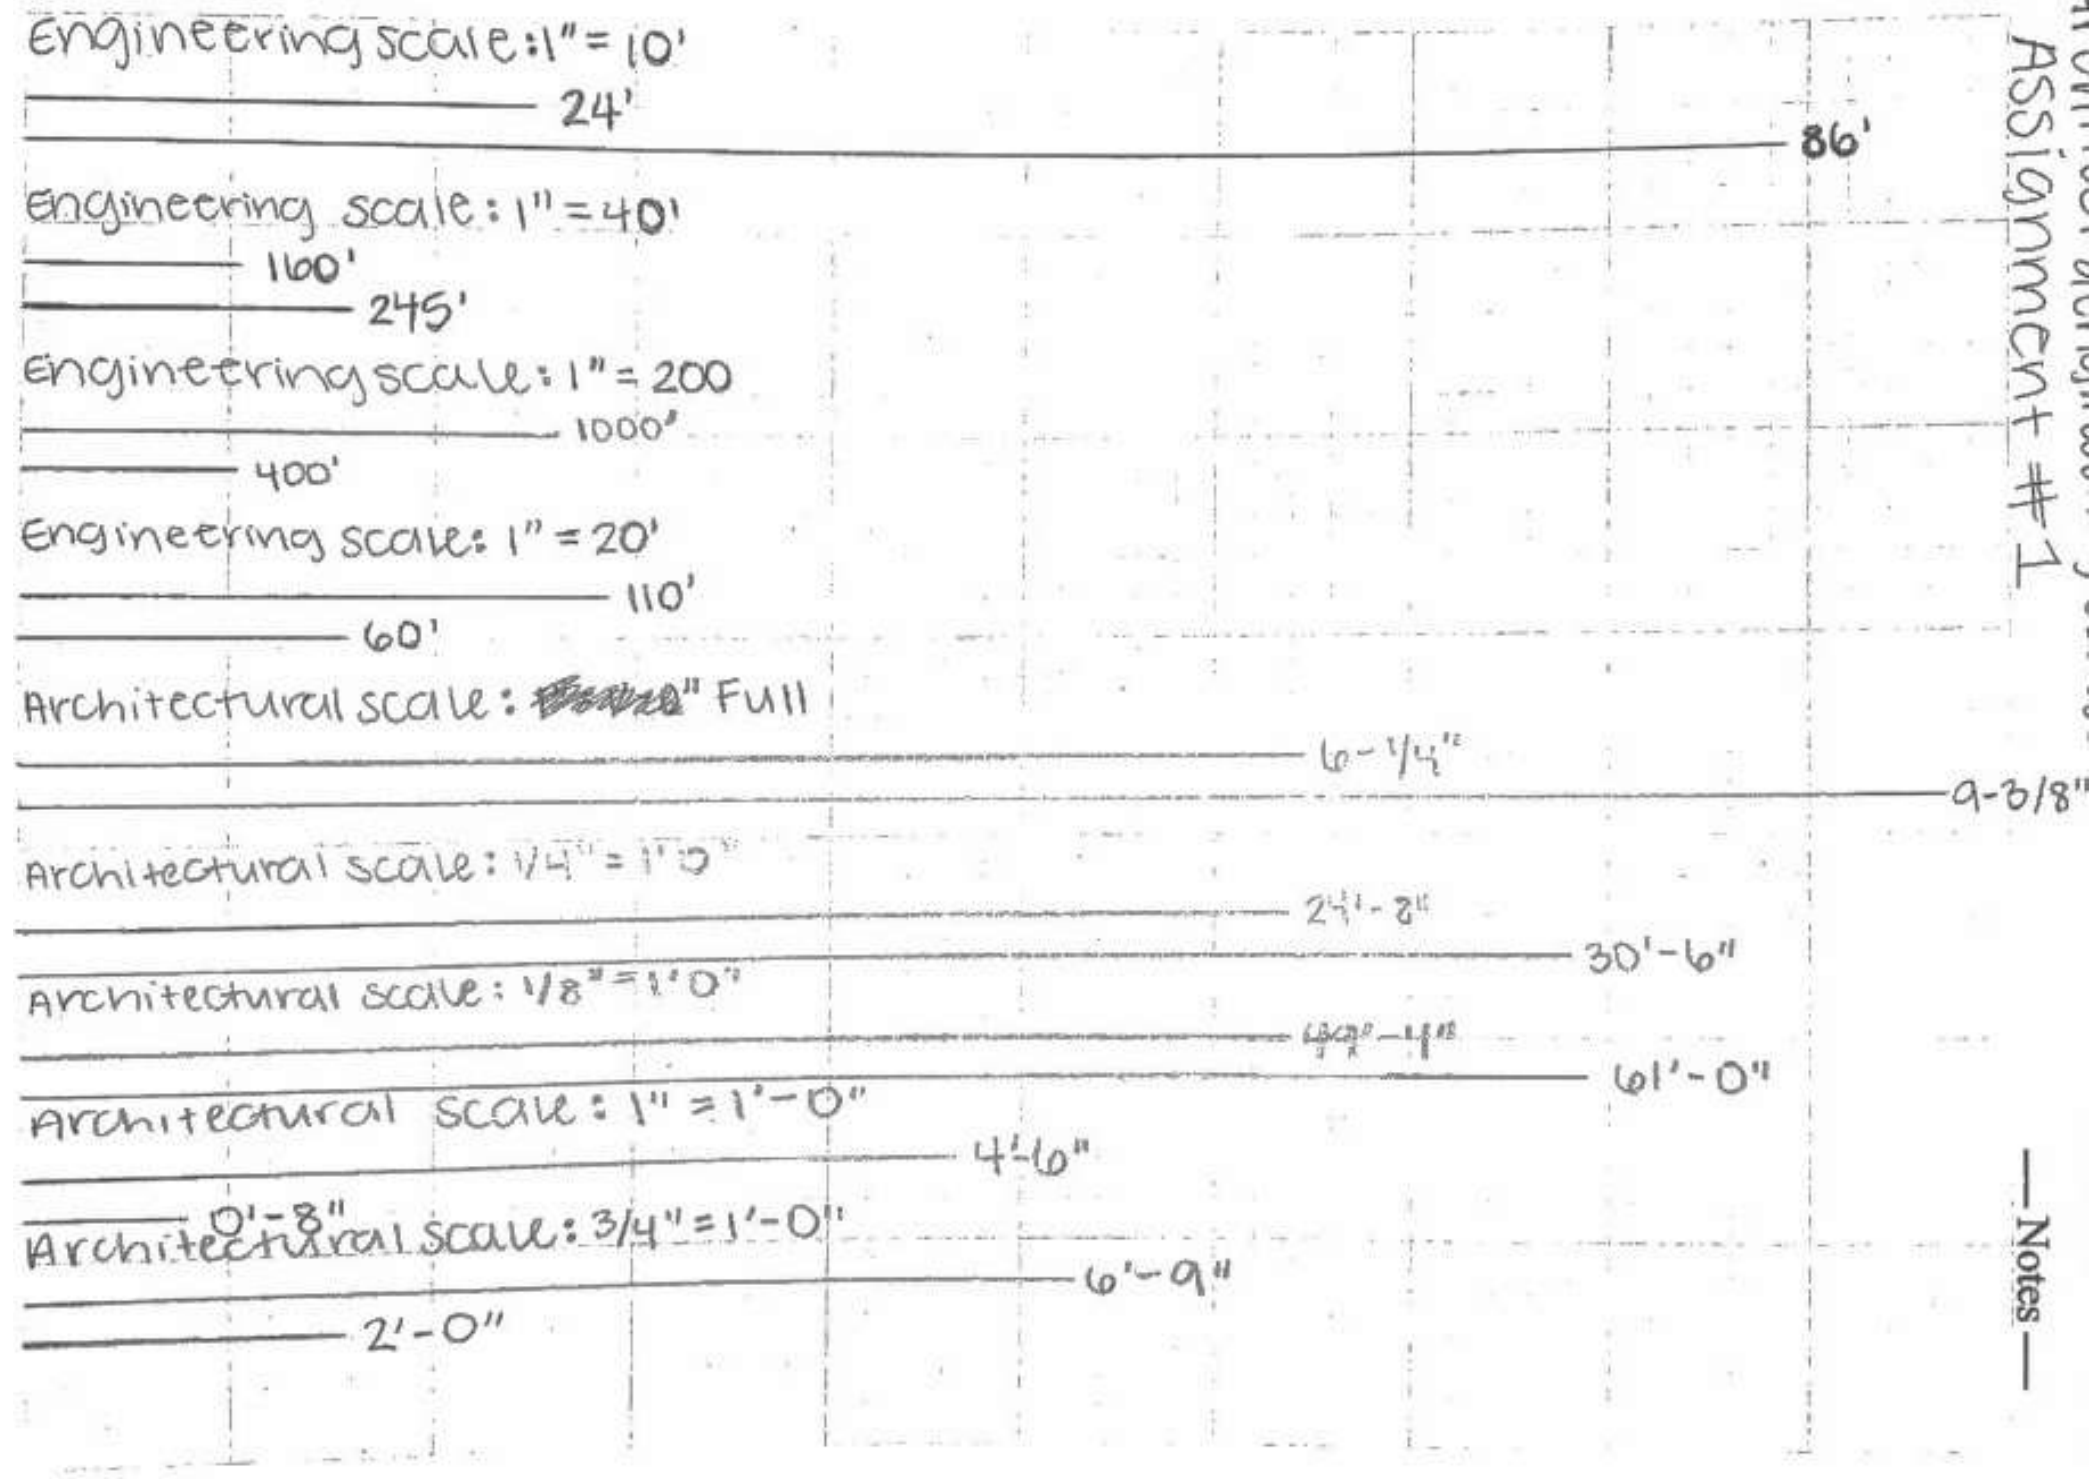 Engineering scale: 1" = 10'
24'
86'
Engineering scale: 1" = 40'
160'
245'
Engineering scale: 1" = 200
1000'
400'
Engineering scale: 1" = 20'
110'
60'
Architectural scale: " Full
6-1/4"
9-3/8"
Architectural scale: 1/4" = 1'0"
24'-8"
30'-6"
Architectural scale: 1/8" = 1'0"
61'-0"
Architectural scale: 1" = 1'-0"
4'-6"
0'-8"
Architectural scale: 3/4" = 1'-0"
6'-9"
2'-0"
Assignment #1
Notes